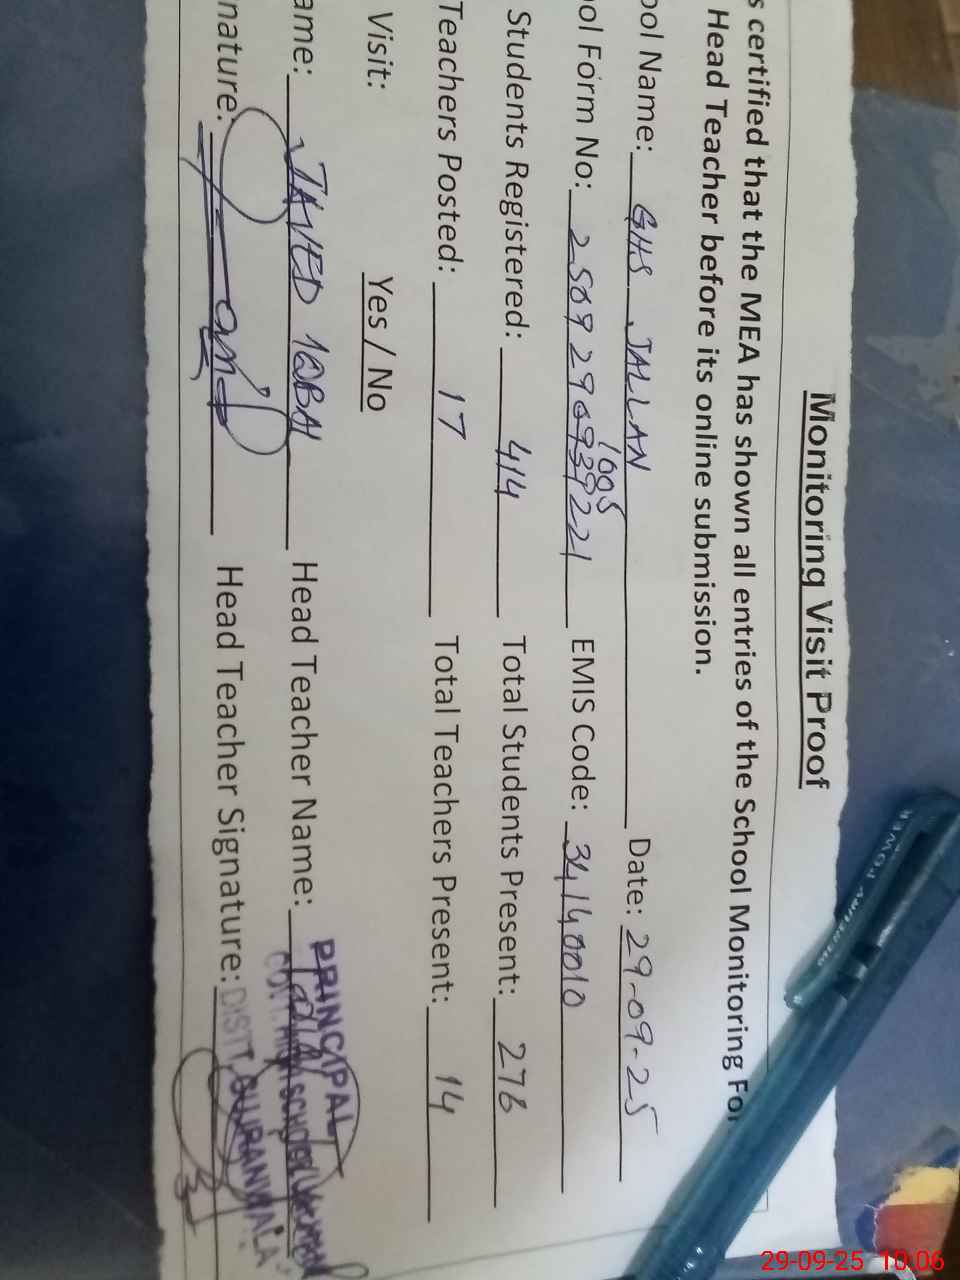 Monitoring Visit Proof
s certified that the MEA has shown all entries of the School Monitoring For
Head Teacher before its online submission.
ool Name: GHS JALLAN Date: 29-09-25
1005
ool Form No: 2509 29 EMIS Code: 34140010
Students Registered: 414 Total Students Present: 276
Teachers Posted: 17 Total Teachers Present: 14
Visit: Yes / No
ame: JAVED IQBAL Head Teacher Name:
PRINCIPAL
nature: Head Teacher Signature:
DISTT, GUJRANWALA
POWER
29-09-25 10:06